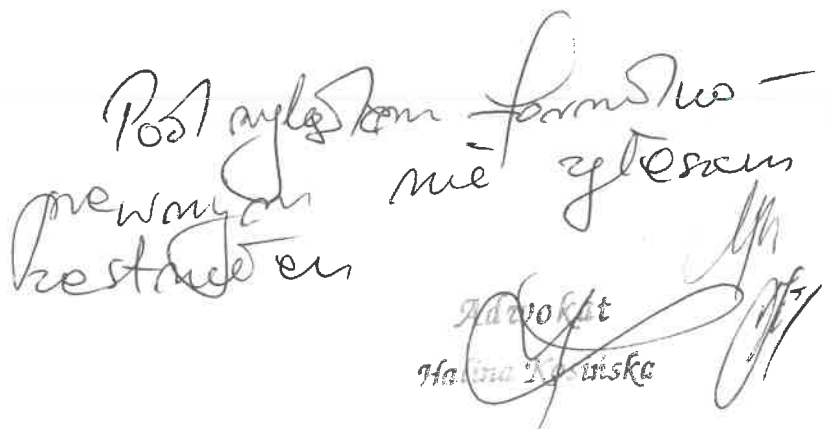 Pod względem formalno-
prawnym nie zgłaszam
zastrzeżeń
Adwokat
Halina Kosińska